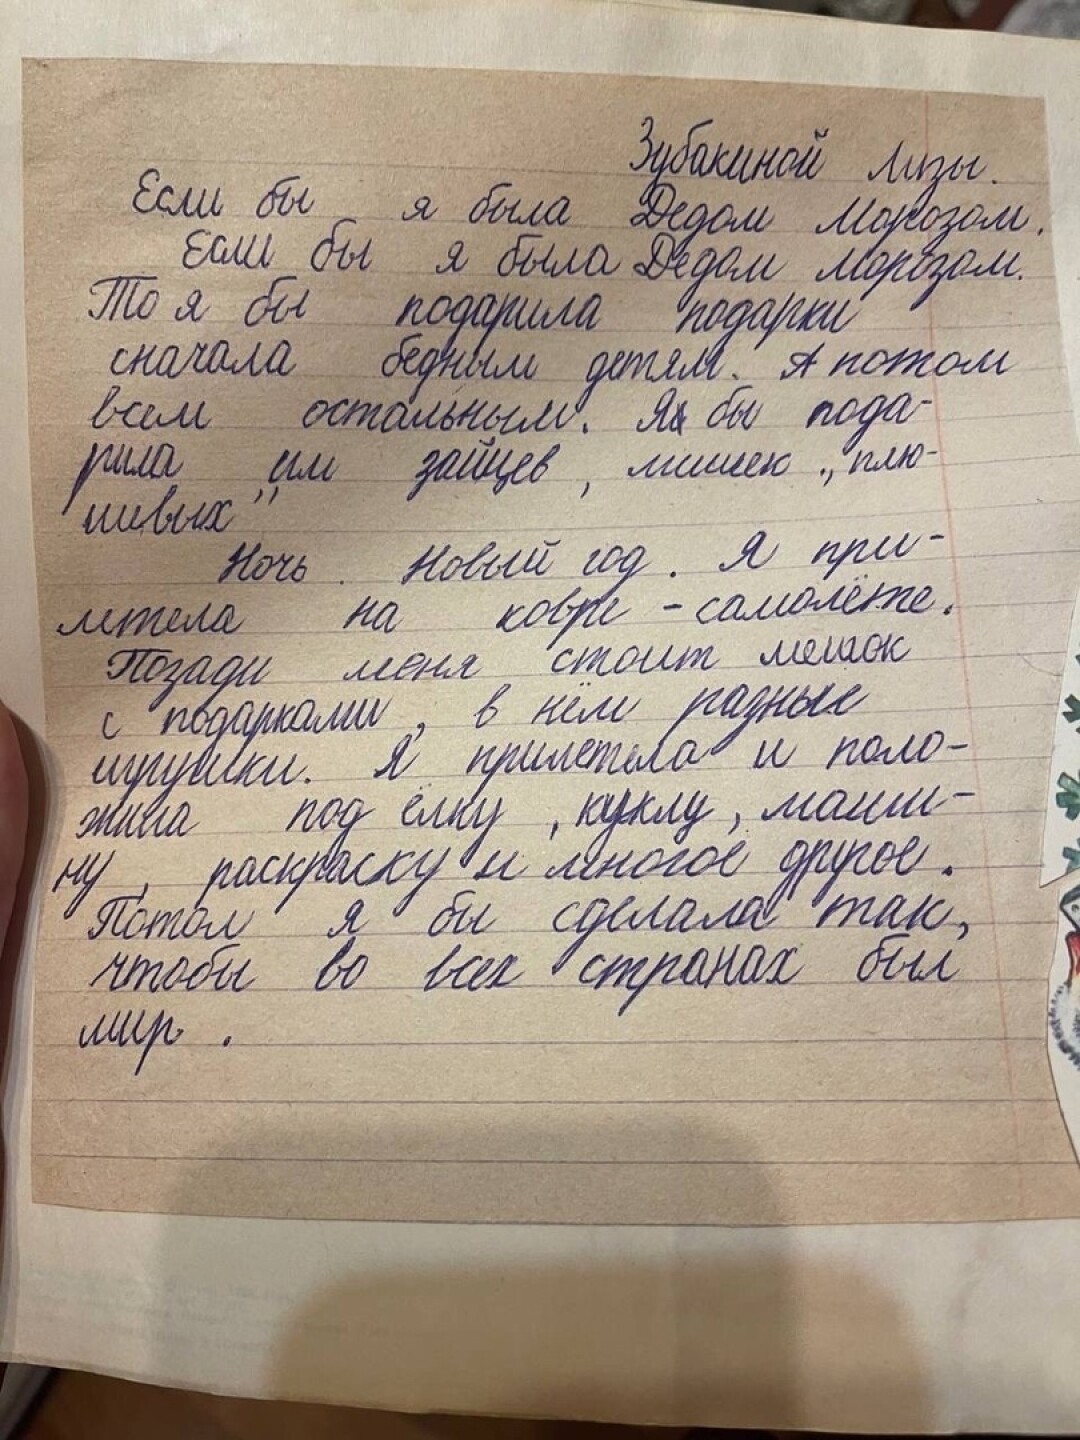 Зубакиной Лизы.
Если бы я была Дедом Морозом.
Если бы я была Дедом Морозом.
То я бы подарила подарки
сначала бедным детям. А потом
всем остальным. Я бы пода-
рила им зайцев, мишек „плю-
шевых"
Ночь. Новый год. Я при-
летела на ковре-самолёте.
Позади меня стоит мешок
с подарками, в нём разные
игрушки. Я прилетела и поло-
жила под ёлку, куклу, маши-
ну, раскраску и многое другое.
Потом я бы сделала так,
чтобы во всех странах был
мир.